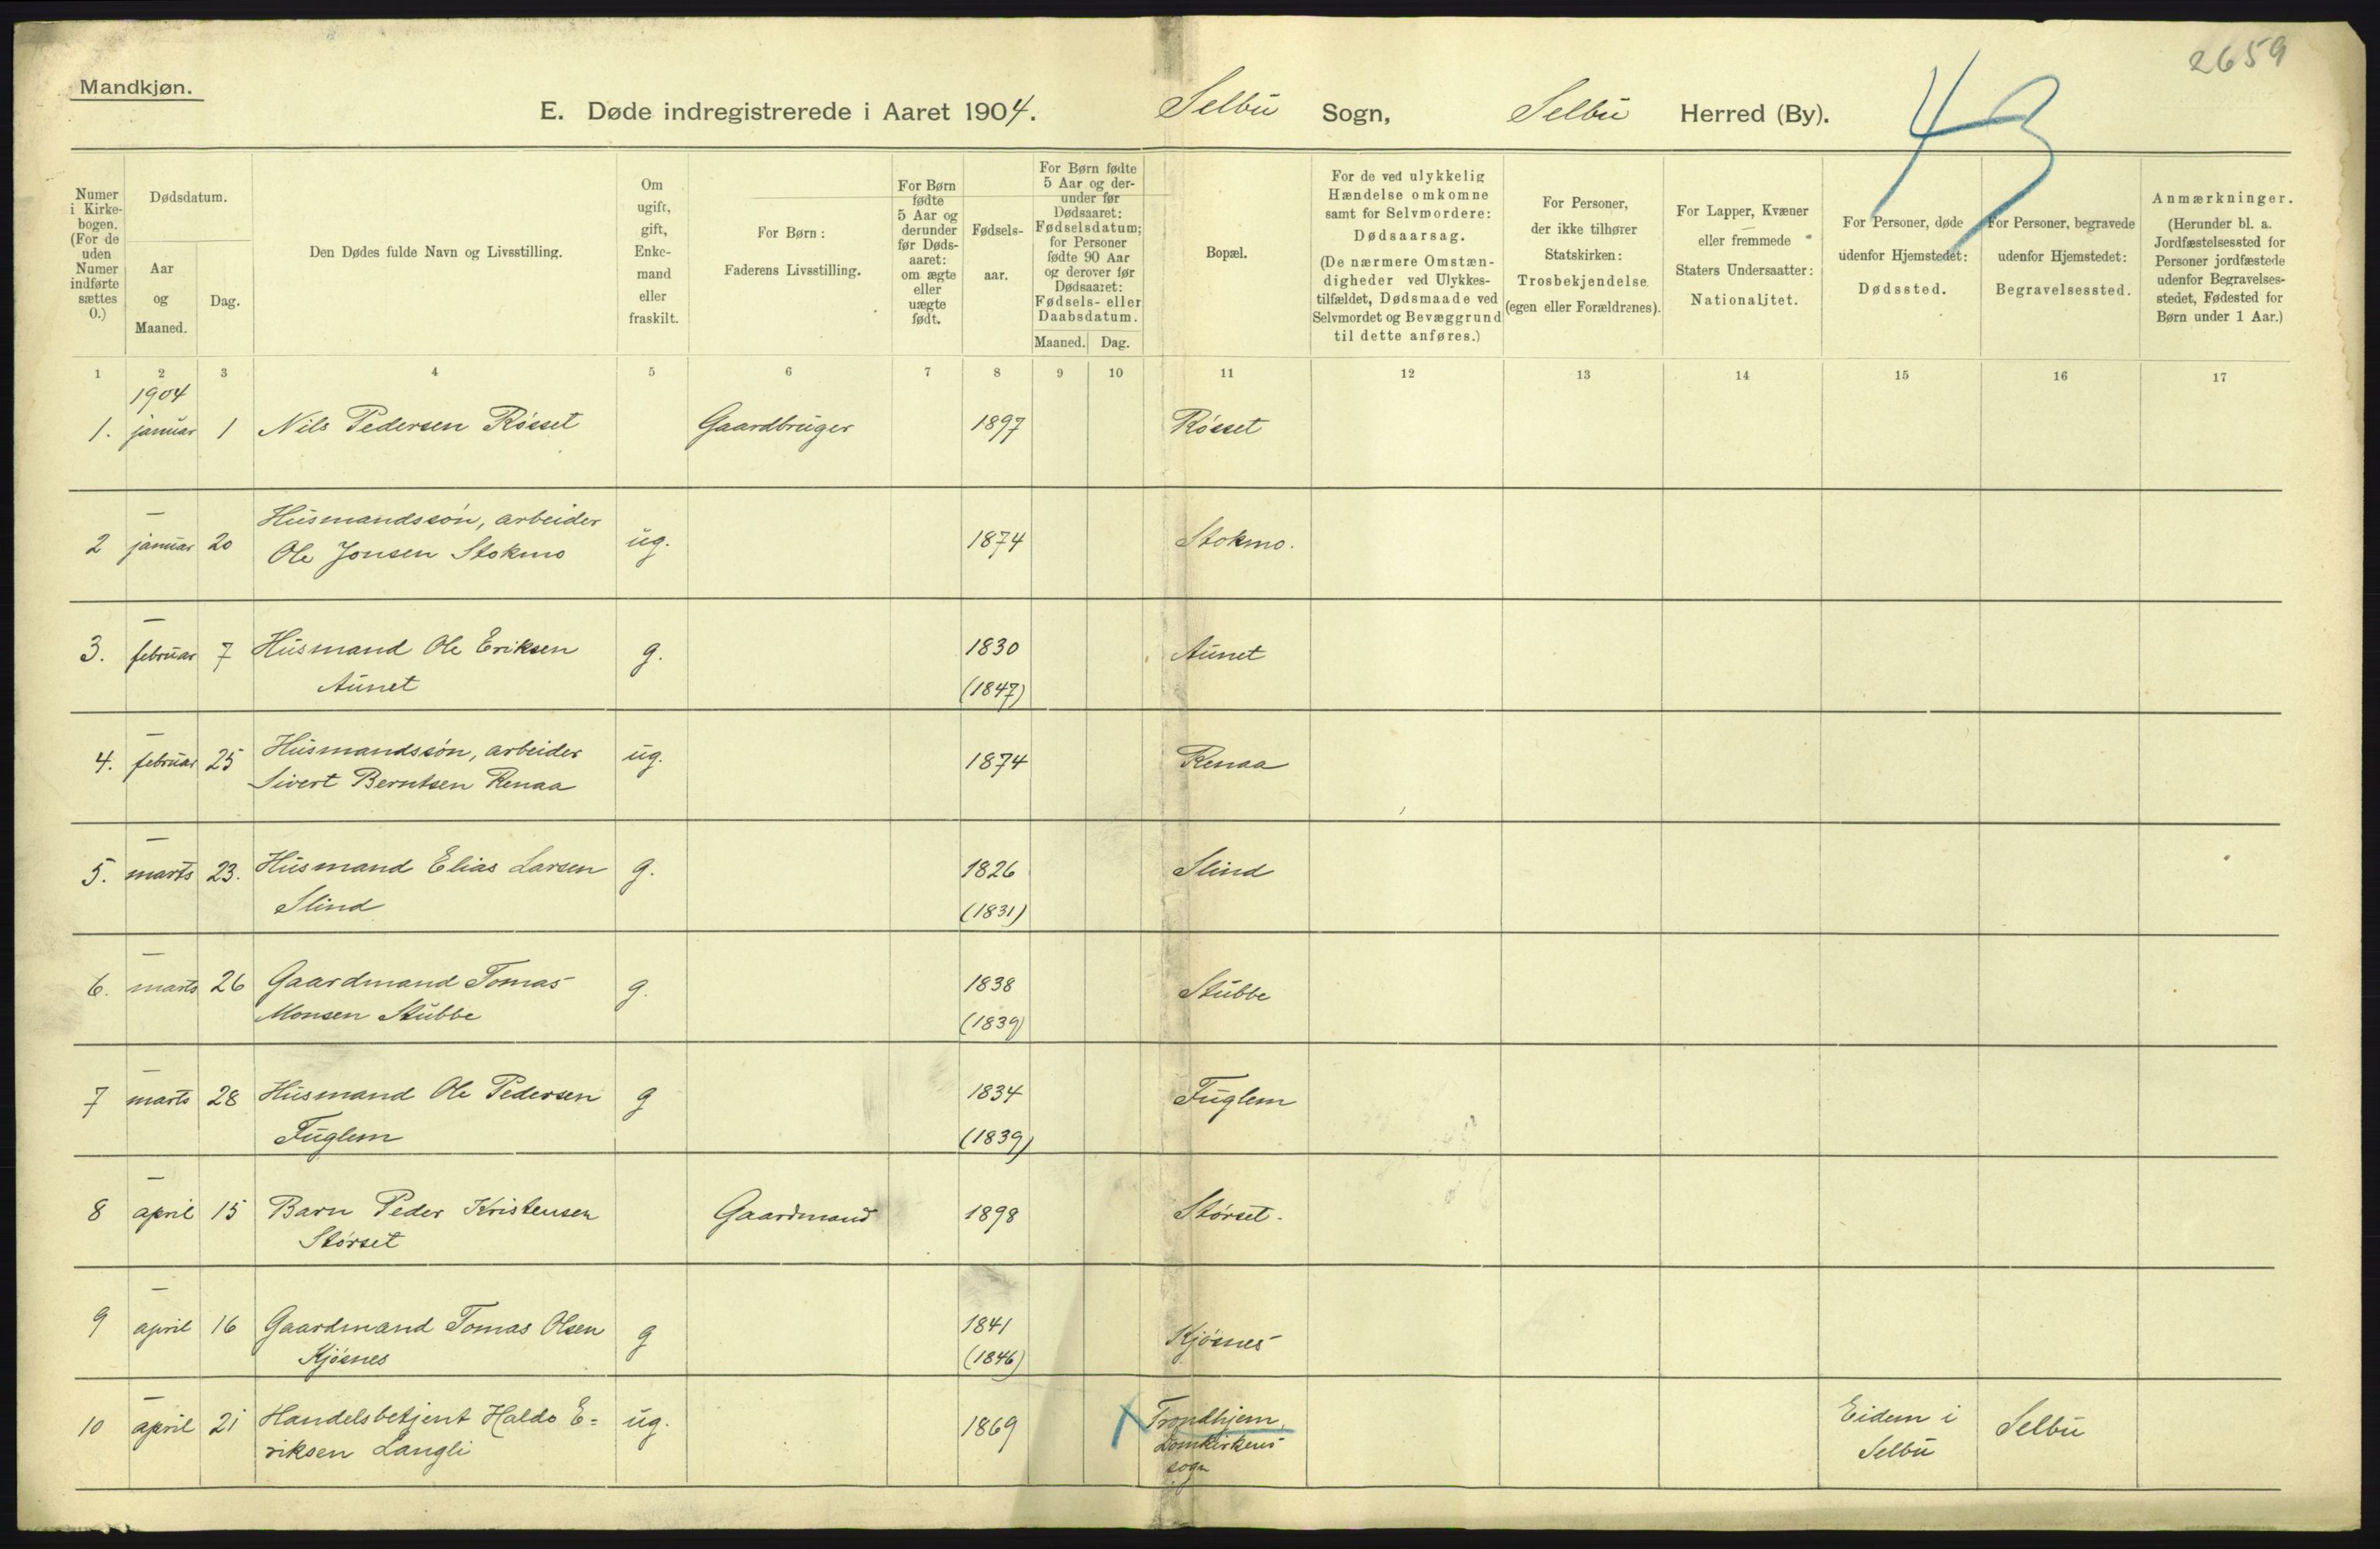 2659
Mandkjøn.
43
E. Døde indregistrerede i Aaret 1904. Selbu Sogn, Selbu Herred (By).
Numer i Kirkebogen. (For de uden Numer indførte sættes 0.)
Dødsdatum.
Aar og Maaned.
Dag.
Den Dødes fulde Navn og Livsstilling.
Om ugift, gift, Enkemand eller fraskilt.
For Børn: Faderens Livsstilling.
For Børn fødte 5 Aar og derunder før Dødsaaret: om ægte eller uægte født.
Fødselsaar.
For Børn fødte 5 Aar og derunder før Dødsaaret: Fødselsdatum; for Personer fødte 90 Aar og derover før Dødsaaret: Fødsels- eller Daabsdatum.
Maaned. Dag.
Bopæl.
For de ved ulykkelig Hændelse omkomne samt for Selvmordere: Dødsaarsag. (De nærmere Omstændigheder ved Ulykkestilfældet, Dødsmaade ved Selvmordet og Bevæggrund til dette anføres.)
For Personer, der ikke tilhører Statskirken: Trosbekjendelse (egen eller Forældrenes).
For Lapper, Kvæner eller fremmede Staters Undersaatter: Nationalitet.
For Personer, døde udenfor Hjemstedet: Dødssted.
For Personer, begravede udenfor Hjemstedet: Begravelsessted.
Anmærkninger. (Herunder bl. a. Jordfæstelsessted for Personer jordfæstede udenfor Begravelsesstedet, Fødested for Børn under 1 Aar.)
1 2 3 4 5 6 7 8 9 10 11 12 13 14 15 16 17
1904
1. januar 1 Nils Pedersen Rósset Gaardbruger 1897 Rósset
—
2 januar 20 Husmandssón, arbeider ug. 1874 Stokmo.
Ole Jonsen Stokmo
—
3. februar 7 Husmand Ole Eriksen g. 1830 Aunet
Aunet (1847)
—
4. februar 25 Husmandssón, arbeider ug. 1874 Renaa
Sivert Berntsen Renaa
—
5. marts 23. Husmand Elias Larsen g. 1826 Slind
Slind (1831)
—
6. marts 26 Gaardmand Tomas g. 1838 Stubbe
Monsen Stubbe (1839)
—
7 marts 28 Husmand Ole Pedersen g 1834 Fuglem
Fuglem (1839)
—
8 april 15 Barn Peder Kristensen Gaardmand 1898 Stórset.
Stórset
—
9 april 16 Gaardmand Tomas Olsen g 1841 Kjósnes
Kjósnes (1846)
—
10 april 21 Handelsbetjent Haldo E= ug. 1869 Trondhjem, Eidem i Selbu
riksen Langli Domkirkens Selbu
sogn